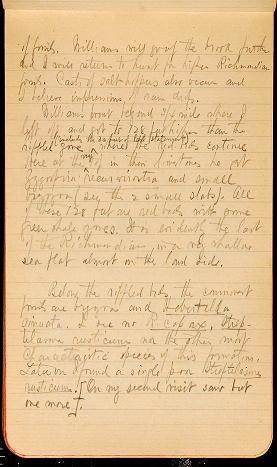 of fossils. Williams will go up the brook further
and I will return to hunt for higher Richmondian
fossils. Casts of salt hoppers also occur and
I believe impressions of rain drops.
Williams went beyond 3/4 mile where I
left off and got to 128 feet higher than the
rippled zone where the red beds continue
Here at the top of in thin limestones he got
Zygospira recurvirostra and small
bryozoa (see the 2 small slabs). All
of these 128 feet are red beds with some
green shale zones. It is evidently the last
of the Richmondian, in a very shallow
sea flat almost on the land side.
Below the rippled beds, the commonest
fossils are bryozoa and Hebertella
sinuata. I see no R. capax, Strop-
rusticums nor the other most
Characteristic species of this formation.
Later on found a single poor Streptelasma
rusticum. [On my second visit saw but
one more].